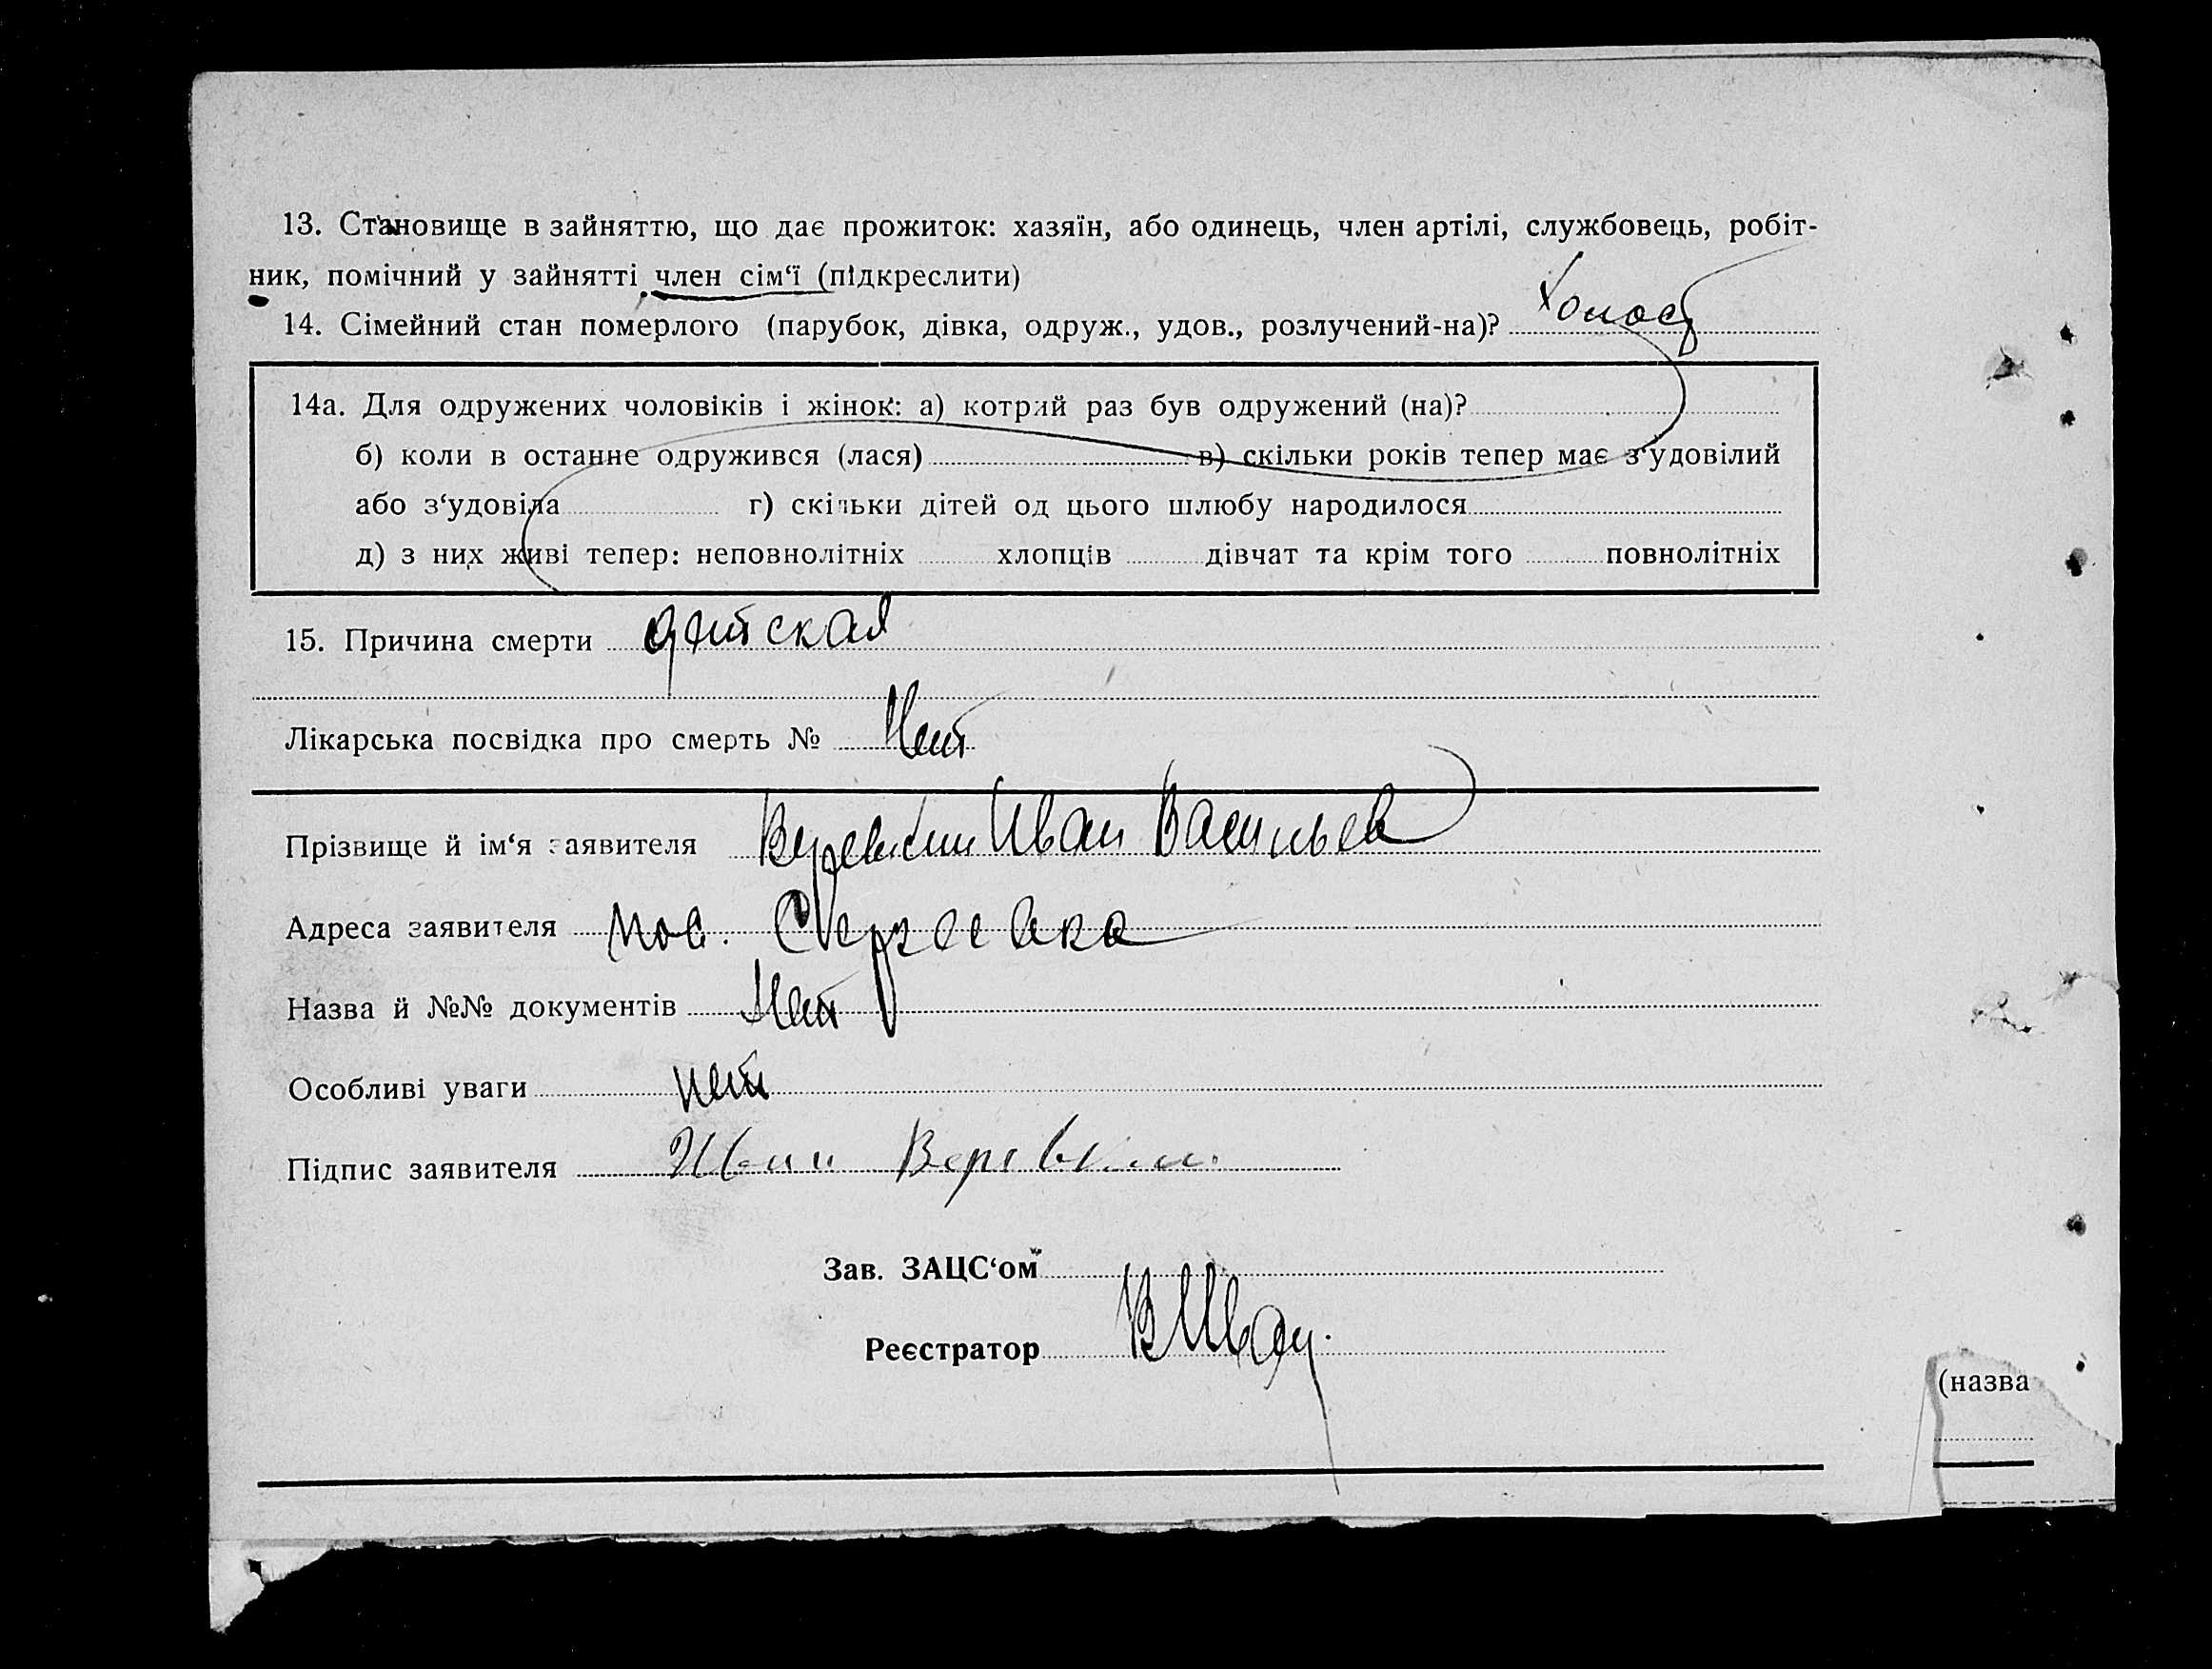 13. Становище в зайняттю, що дає прожиток: хазяїн, або одинець, член артілі, службовець, робіт-
ник, помічний у зайнятті член сім‘ї (підкреслити)
14. Сімейний стан померлого (парубок, дівка, одруж., удов., розлучений-на)? Холост
14а. Для одружених чоловіків і жінок: а) котрий раз був одружений (на)?
б) коли в останне одружився (лася) в) скільки років тепер має з‘удовілий
або з‘удовіла г) скільки дітей од цього шлюбу народилося
д) з них живі тепер: неповнолітніх хлопців дівчат та крім того повнолітніх
15. Причина смерти дитская
Лікарська посвідка про смерть № Нет
Прізвище й ім‘я заявителя Веревкин Иван Васильев
Адреса заявителя пос. Сергеевка
Назва й №№ документів Нет
Особливі уваги нет
Підпис заявителя Иван Веревкин
Зав. ЗАЦС‘ом
Реєстратор
(назва